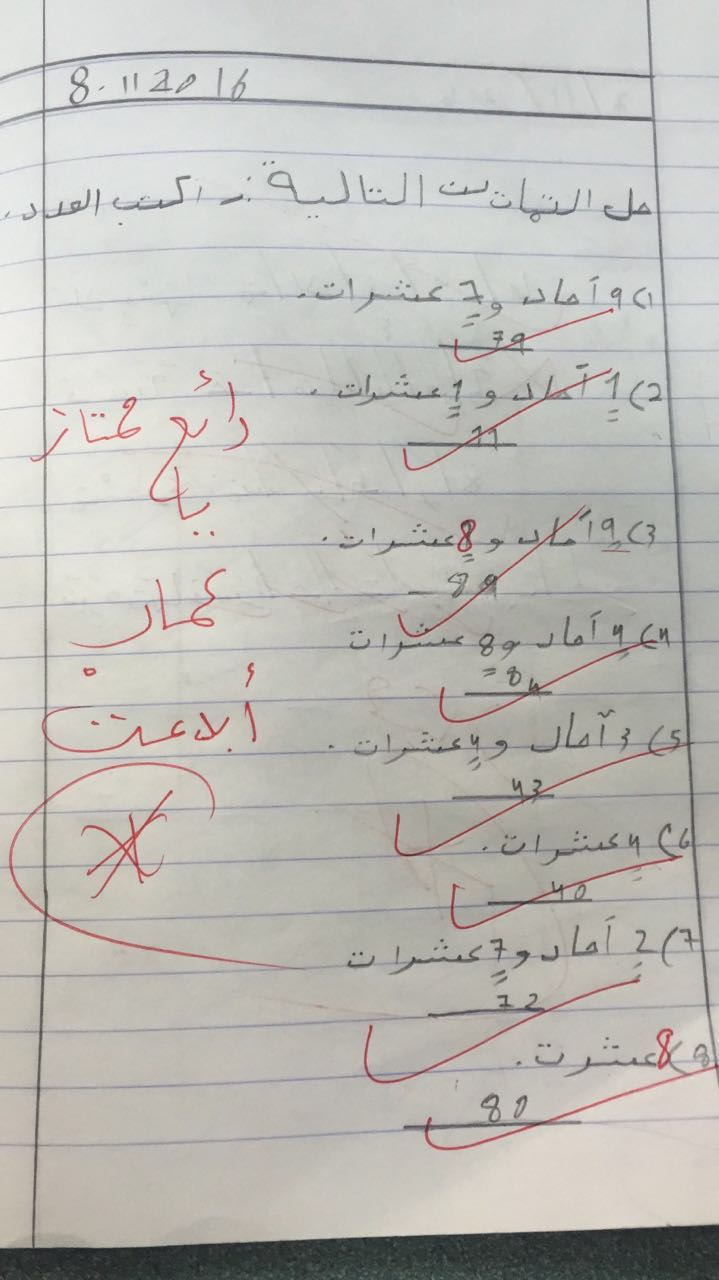 8.11 2016
حل التمات ست التالية :- اكتب العدد.
1) 9 آحاد و 7 عشرات.
79
2) 1 آحاد و 1 عشرات.
11
3) 9 آحاد و 8 عشرات.
89
4) 4 آحاد و 8 عشرات
84
5) 3 آحاد و 4 عشرات.
43
6) 4 عشرات.
40
7) 2 آحاد و 7 عشرات
72
8) 8 عشرت.
80
رائع ممتاز
يا
أبدعت